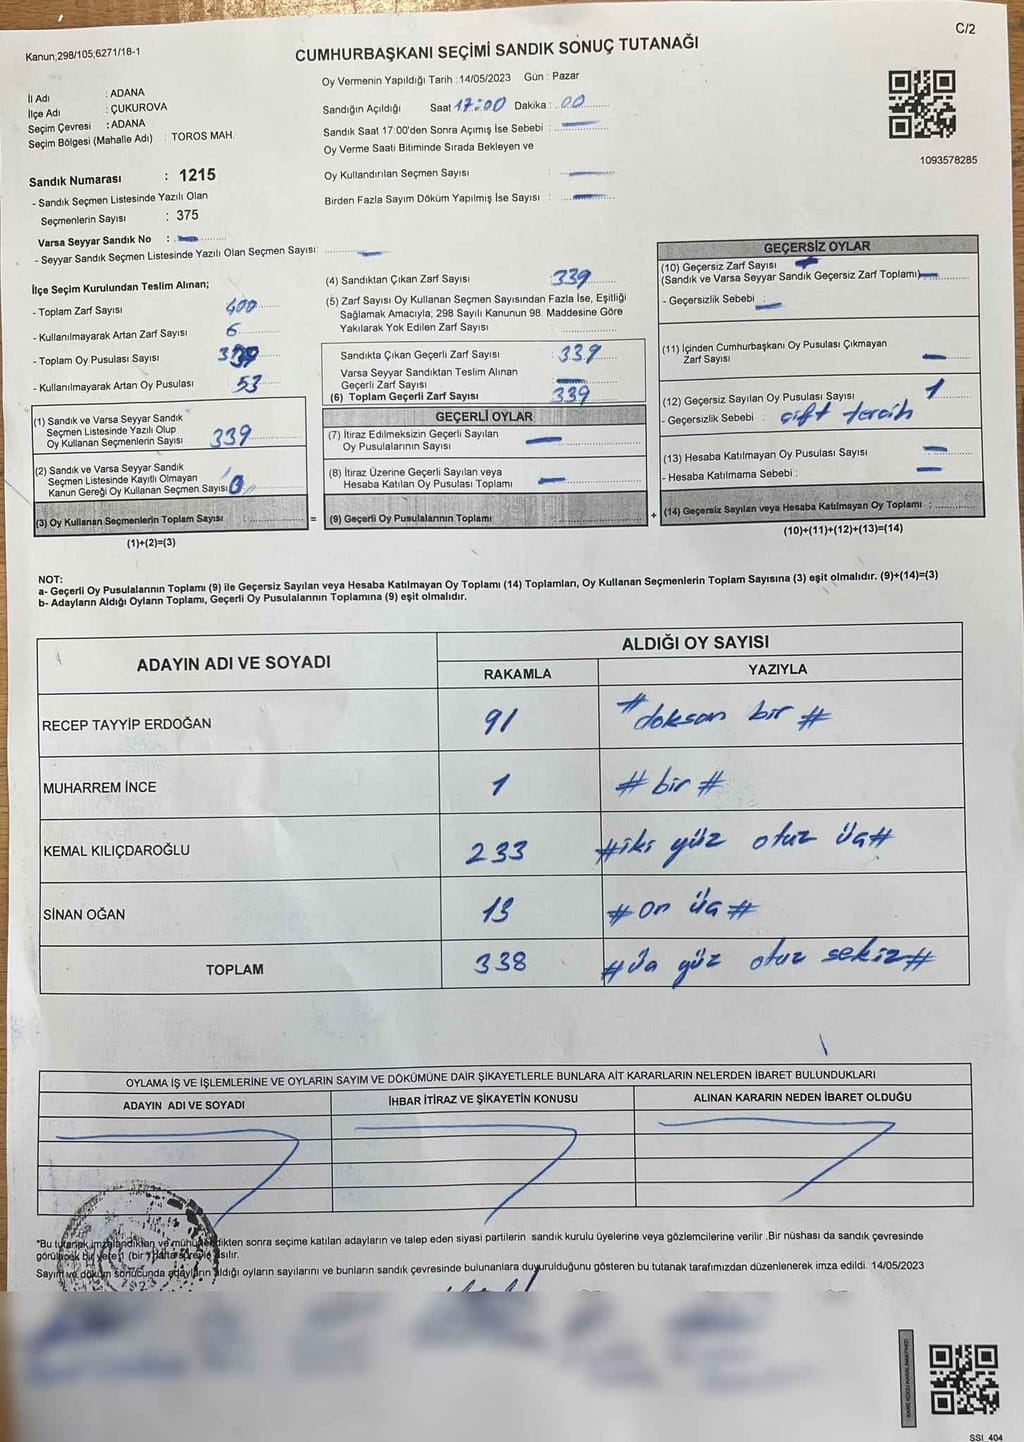 Kanun;298/105,6271/18-1
CUMHURBAŞKANI SEÇİMİ SANDIK SONUÇ TUTANAĞI
C/2
İl Adı : ADANA
İlçe Adı : ÇUKUROVA
Seçim Çevresi : ADANA
Seçim Bölgesi (Mahalle Adı) : TOROS MAH.
Sandık Numarası : 1215
- Sandık Seçmen Listesinde Yazılı Olan
Seçmenlerin Sayısı : 375
Varsa Seyyar Sandık No :
- Seyyar Sandık Seçmen Listesinde Yazılı Olan Seçmen Sayısı:
Oy Vermenin Yapıldığı Tarih :14/05/2023 Gün : Pazar
Sandığın Açıldığı Saat 17:00 Dakika : 00
Sandık Saat 17:00'den Sonra Açımış İse Sebebi :
Oy Verme Saati Bitiminde Sırada Bekleyen ve
Oy Kullandırılan Seçmen Sayısı :
Birden Fazla Sayım Döküm Yapılmış İse Sayısı :
1093578285
İlçe Seçim Kurulundan Teslim Alınan;
- Toplam Zarf Sayısı 400
- Kullanılmayarak Artan Zarf Sayısı 6
- Toplam Oy Pusulası Sayısı
- Kullanılmayarak Artan Oy Pusulası 53
(1) Sandık ve Varsa Seyyar Sandık
Seçmen Listesinde Yazılı Olup
Oy Kullanan Seçmenlerin Sayısı 339
(2) Sandık ve Varsa Seyyar Sandık
Seçmen Listesinde Kayıtlı Olmayan
Kanun Gereği Oy Kullanan Seçmen Sayısı 0
(3) Oy Kullanan Seçmenlerin Toplam Sayısı :
(1)+(2)=(3)
=
(4) Sandıktan Çıkan Zarf Sayısı : 339
(5) Zarf Sayısı Oy Kullanan Seçmen Sayısından Fazla İse, Eşitliği
Sağlamak Amacıyla; 298 Sayılı Kanunun 98. Maddesine Göre
Yakılarak Yok Edilen Zarf Sayısı :
Sandıkta Çıkan Geçerli Zarf Sayısı : 339
Varsa Seyyar Sandıktan Teslim Alınan
Geçerli Zarf Sayısı :
(6) Toplam Geçerli Zarf Sayısı : 339
GEÇERLİ OYLAR
(7) İtiraz Edilmeksizin Geçerli Sayılan
Oy Pusulalarının Sayısı :
(8) İtiraz Üzerine Geçerli Sayılan veya
Hesaba Katılan Oy Pusulası Toplamı :
(9) Geçerli Oy Pusulalarının Toplamı :
+
GEÇERSİZ OYLAR
(10) Geçersiz Zarf Sayısı :
(Sandık ve Varsa Seyyar Sandık Geçersiz Zarf Toplamı)
- Geçersizlik Sebebi :
(11) İçinden Cumhurbaşkanı Oy Pusulası Çıkmayan
Zarf Sayısı :
(12) Geçersiz Sayılan Oy Pusulası Sayısı : 1
- Geçersizlik Sebebi : çift tercih
(13) Hesaba Katılmayan Oy Pusulası Sayısı :
- Hesaba Katılmama Sebebi :
(14) Geçersiz Sayılan veya Hesaba Katılmayan Oy Toplamı :
(10)+(11)+(12)+(13)=(14)
NOT:
a- Geçerli Oy Pusulalarının Toplamı (9) ile Geçersiz Sayılan veya Hesaba Katılmayan Oy Toplamı (14) Toplamları, Oy Kullanan Seçmenlerin Toplam Sayısına (3) eşit olmalıdır. (9)+(14)=(3)
b- Adayların Aldığı Oyların Toplamı, Geçerli Oy Pusulalarının Toplamına (9) eşit olmalıdır.
ADAYIN ADI VE SOYADI
ALDIĞI OY SAYISI
RAKAMLA YAZIYLA
RECEP TAYYİP ERDOĞAN 91 # doksan bir #
MUHARREM İNCE 1 # bir #
KEMAL KILIÇDAROĞLU 233 # iki yüz otuz üç #
SİNAN OĞAN 13 # on üç #
TOPLAM 338 # üç yüz otuz sekiz #
OYLAMA İŞ VE İŞLEMLERİNE VE OYLARIN SAYIM VE DÖKÜMÜNE DAİR ŞİKAYETLERLE BUNLARA AİT KARARLARIN NELERDEN İBARET BULUNDUKLARI
ADAYIN ADI VE SOYADI İHBAR İTİRAZ VE ŞİKAYETİN KONUSU ALINAN KARARIN NEDEN İBARET OLDUĞU
*Bu tutanak imzalandıktan ve mühürlendikten sonra seçime katılan adayların ve talep eden siyasi partilerin sandık kurulu üyelerine veya gözlemcilerine verilir .Bir nüshası da sandık çevresinde
görülecek bir yere 1 (bir) hafta süreyle asılır.
Sayım ve döküm sonucunda adayların aldığı oyların sayılarını ve bunların sandık çevresinde bulunanlara duyurulduğunu gösteren bu tutanak tarafımızdan düzenlenerek imza edildi. 14/05/2023
SSI_404